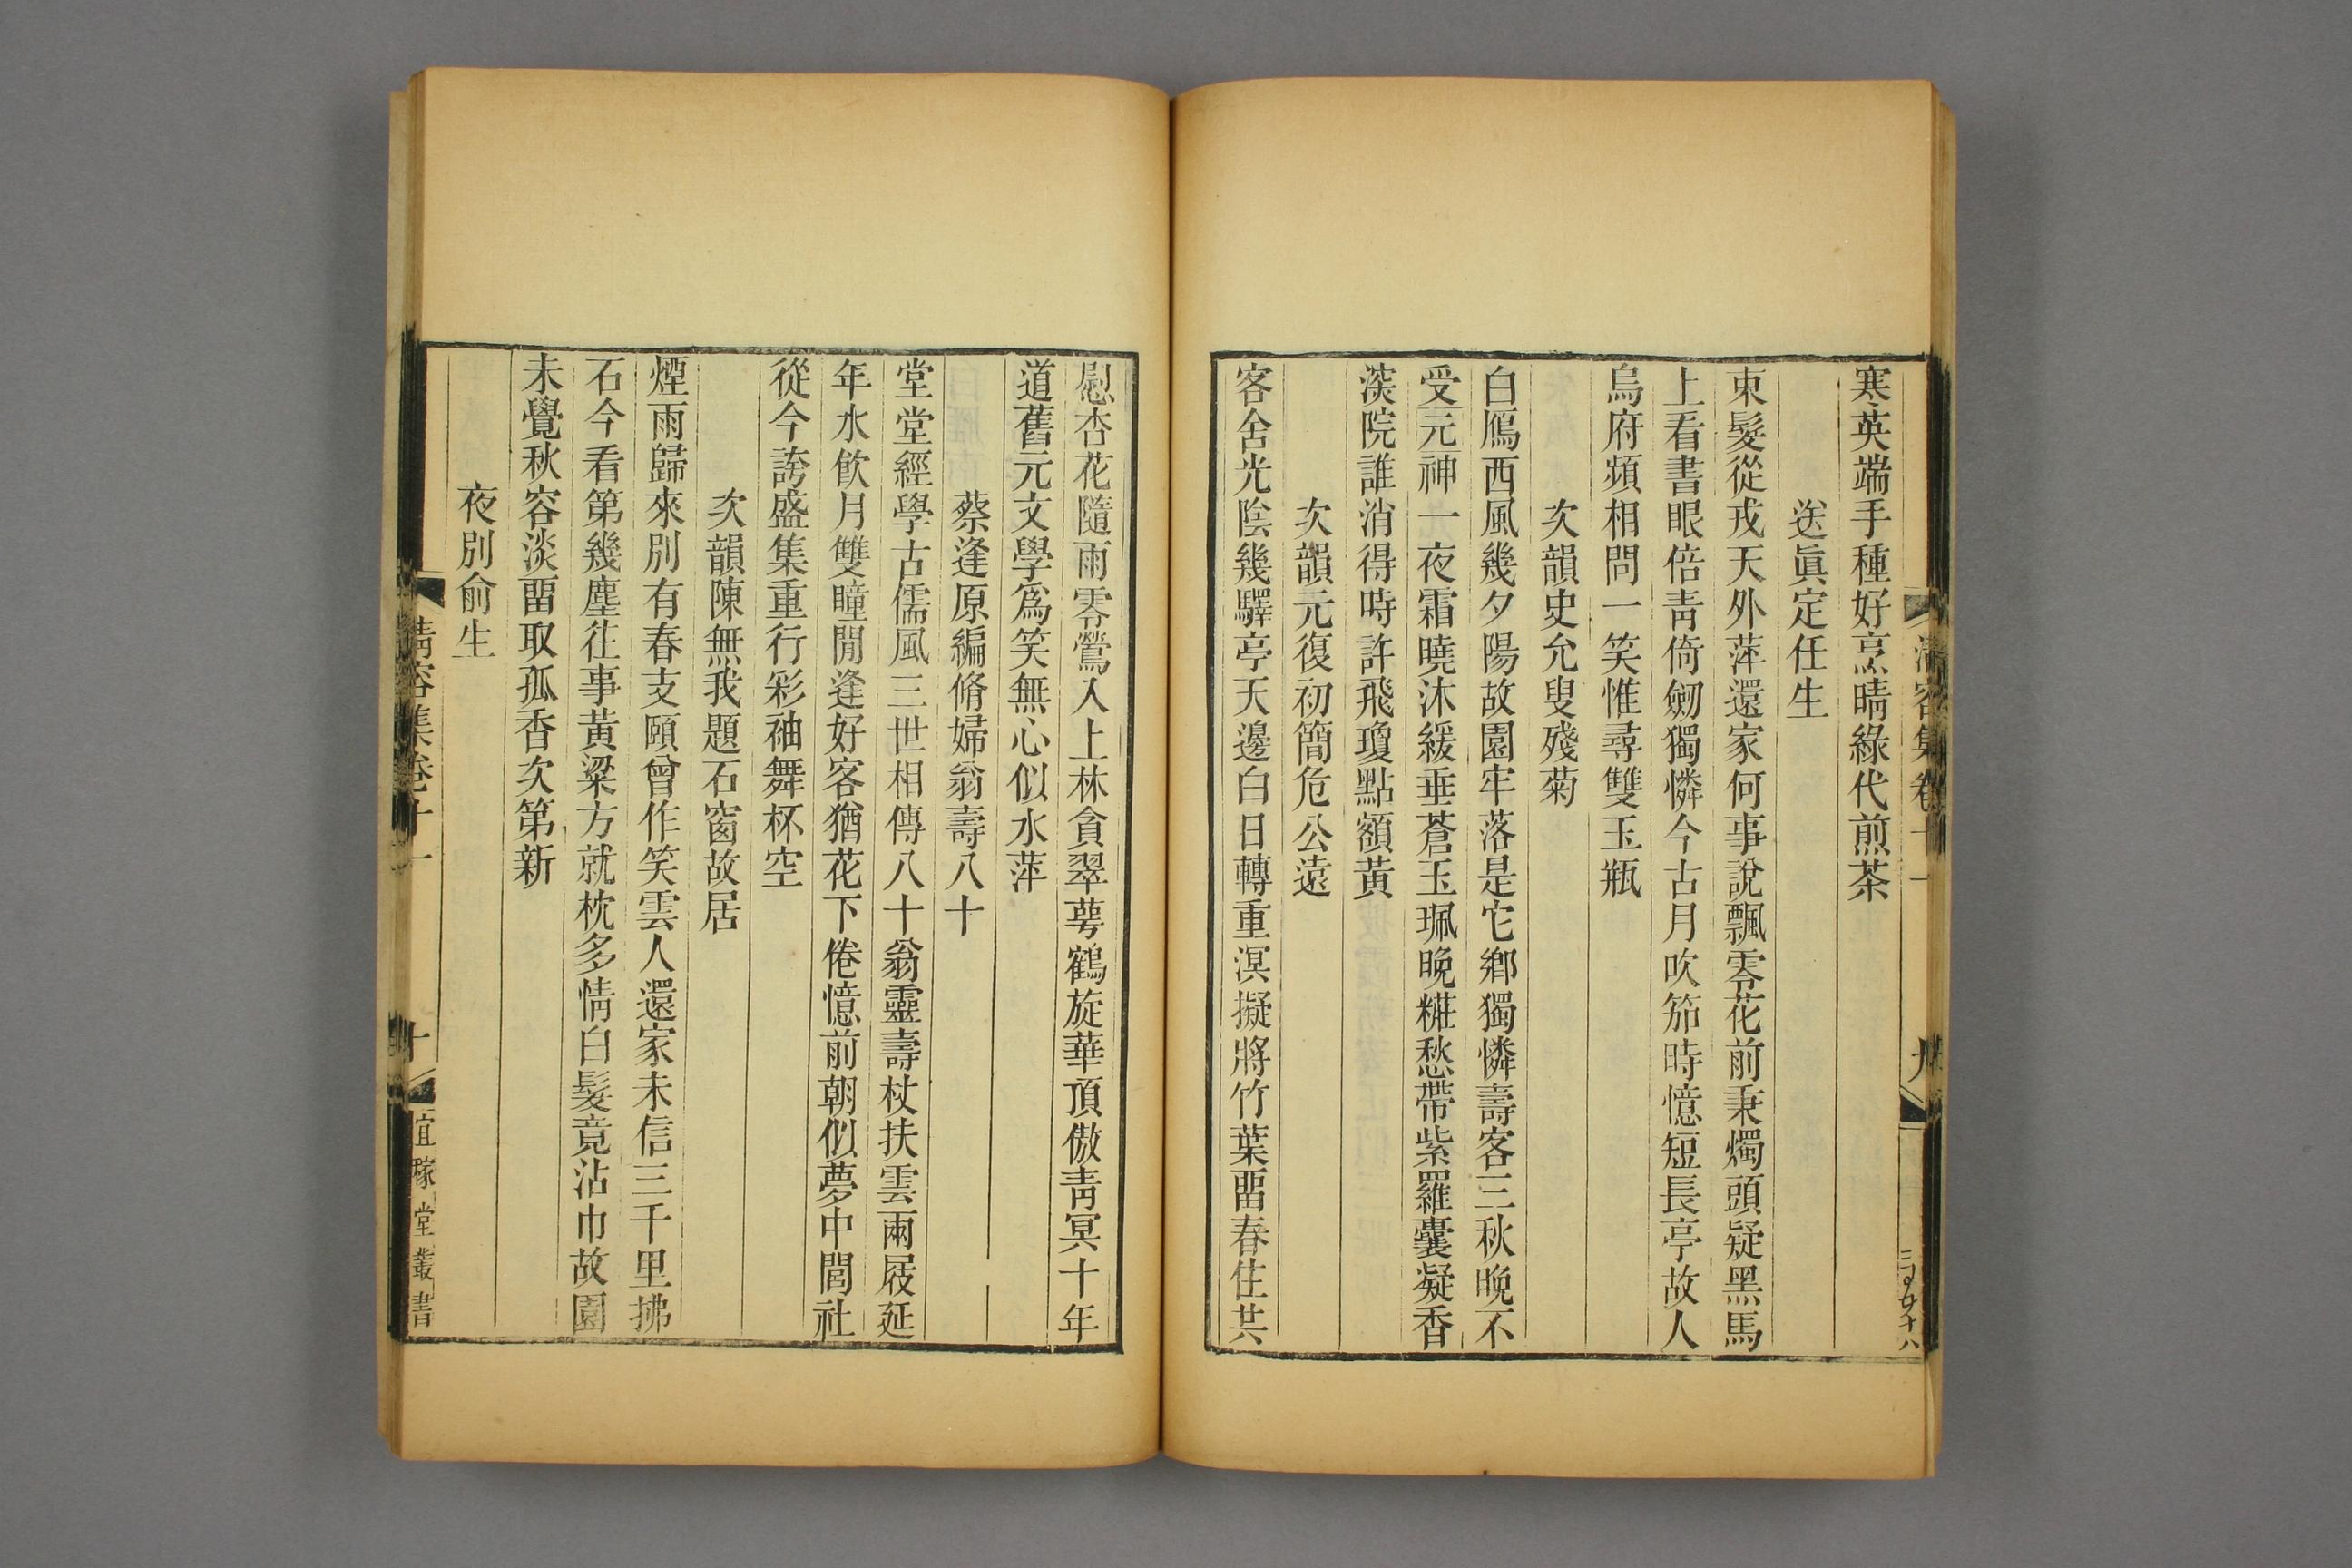 寒英端手種好烹晴綠代煎茶
送眞定任生
束髮從戎天外萍還家何事說飄零花前秉燭頭疑黑馬
上看書眼倍靑倚劒獨憐今古月吹笳時憶短長亭故人
烏府頻相問一笑惟尋雙玉瓶
次韻史允叟殘菊
白鴈西風幾夕陽故園牢落是它鄉獨憐壽客三秋晚不
受元神一夜霜曉沐緩垂蒼玉珮晚糚愁帶紫羅囊凝香
淡院誰消得時許飛瓊點額黃
次韻元復初簡危公遠
客舍光陰幾驛亭天邊白日轉重溟擬將竹葉畱春住共
慰杏花隨雨零鶯入上林貪翠蕚鶴旋華頂傲靑冥十年
道舊元文學爲笑無心似水萍
蔡逢原編脩婦翁壽八十
堂堂經學古儒風三世相傳八十翁靈壽杖扶雲兩屐延
年水飮月雙瞳閒逢好客猶花下倦憶前朝似夢中閭社
從今誇盛集重行彩袖舞杯空
次韻陳無我題石窗故居
煙雨歸來別有春支頤曾作笑雲人還家未信三千里拂
石今看第幾塵往事黃粱方就枕多情白髮竟沾巾故園
未覺秋容淡畱取孤香次第新
夜別俞生
淸容集卷十一
十
宜稼堂叢書